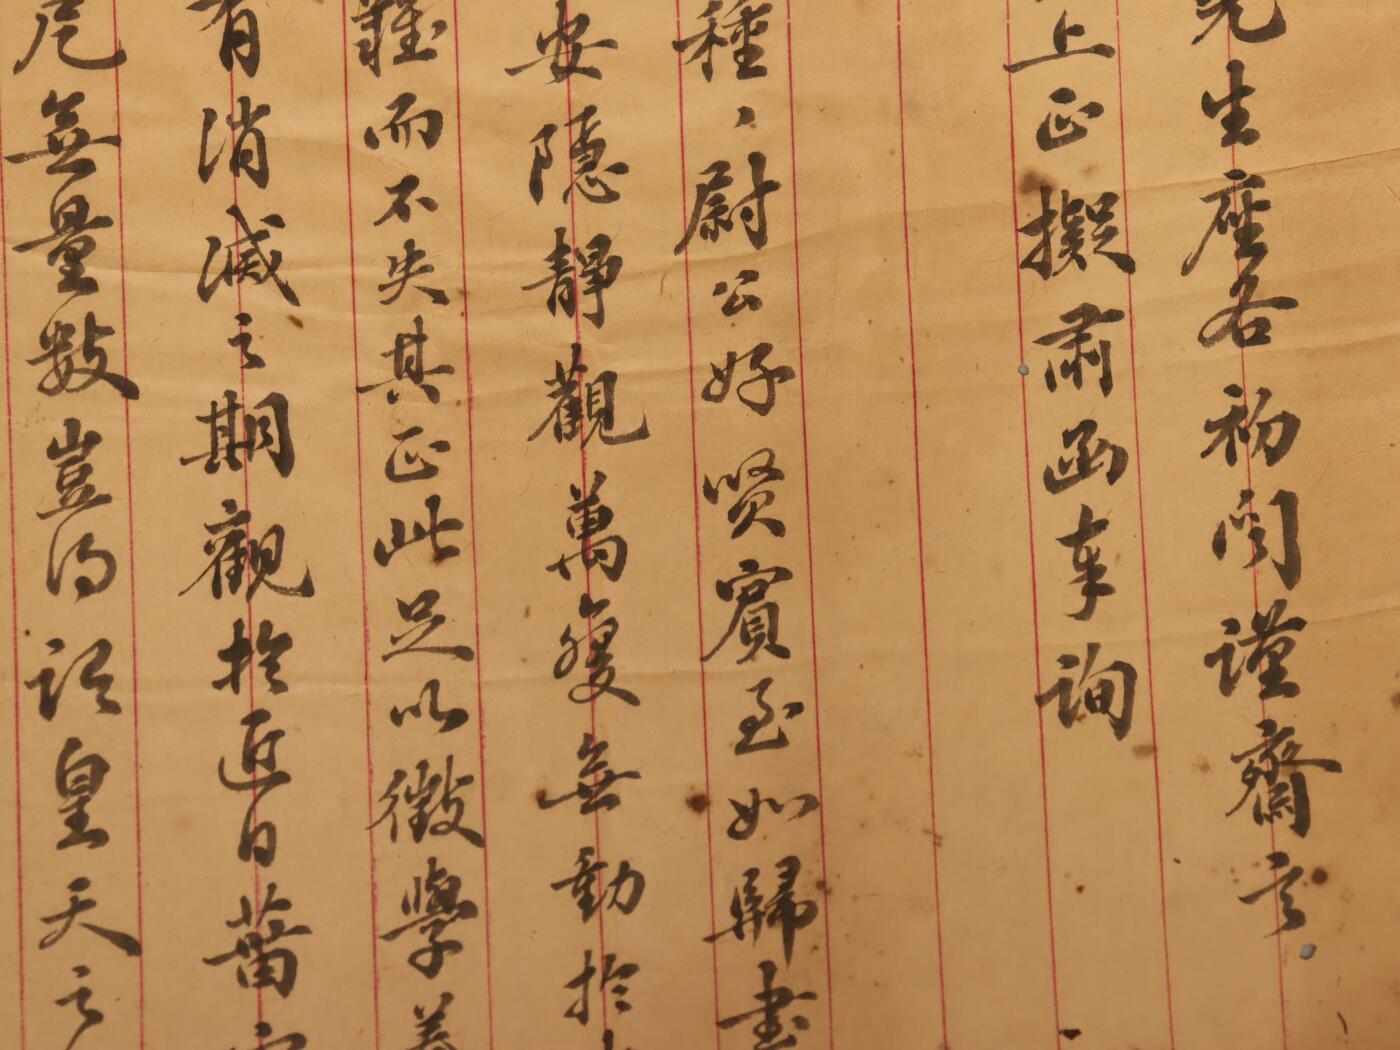 先生座右初闻謹齋言
上正擬肅函奉詢
種、尉公好賢賓至如歸書
安隱靜觀萬變無動於
難而不失其正此足以徵學養
有消滅之期觀於近日蕾
厄無量數豈得謂皇天之